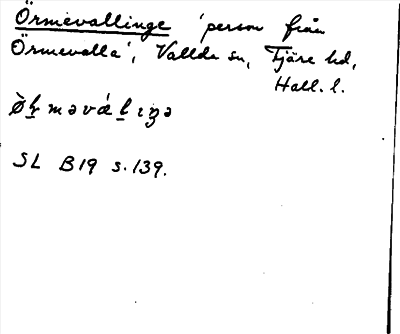 Örmevallinge 'person från
Örmevalla', Vallda sn, Fjäre hd,
Hall. l.
SL B19 s. 139.